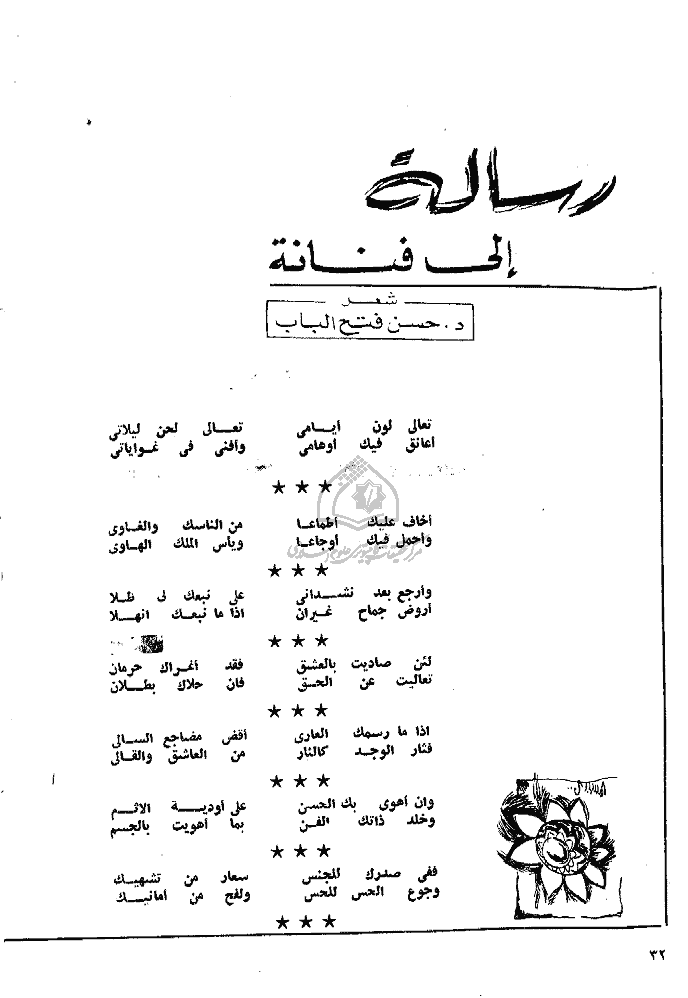 رسالة
إلى فنانة
شعر
د. حسن فتح الباب
تعالى لون أيامى تعالى لحن ليلاتى
أعانق فيك أوهامى وأفنى فى غواياتى
★ ★ ★
أخاف عليك أطماعا من الناسك والغاوى
وأحمل فيك أوجاعا ويأس الملك الهاوى
★ ★ ★
وأرجع بعد نشدانى على نبعك لى ظلا
أروض جماح غيران اذا ما نبعك انهلا
★ ★ ★
لئن صاديت بالعشق فقد أغراك حرمان
تعاليت عن الحق فان حلاك بطلان
★ ★ ★
اذا ما رسمك العارى أقض مضاجع السالى
فثار الوجد كالنار من العاشق والقالى
★ ★ ★
وان أهوى بك الحسن على أودية الاثم
وخلد ذاتك الفن بما أهويت بالجسم
★ ★ ★
ففى صدرك للجنس سعار من تشهيك
وجوع الحس للحس ولفح من أمانيك
★ ★ ★
٣٢